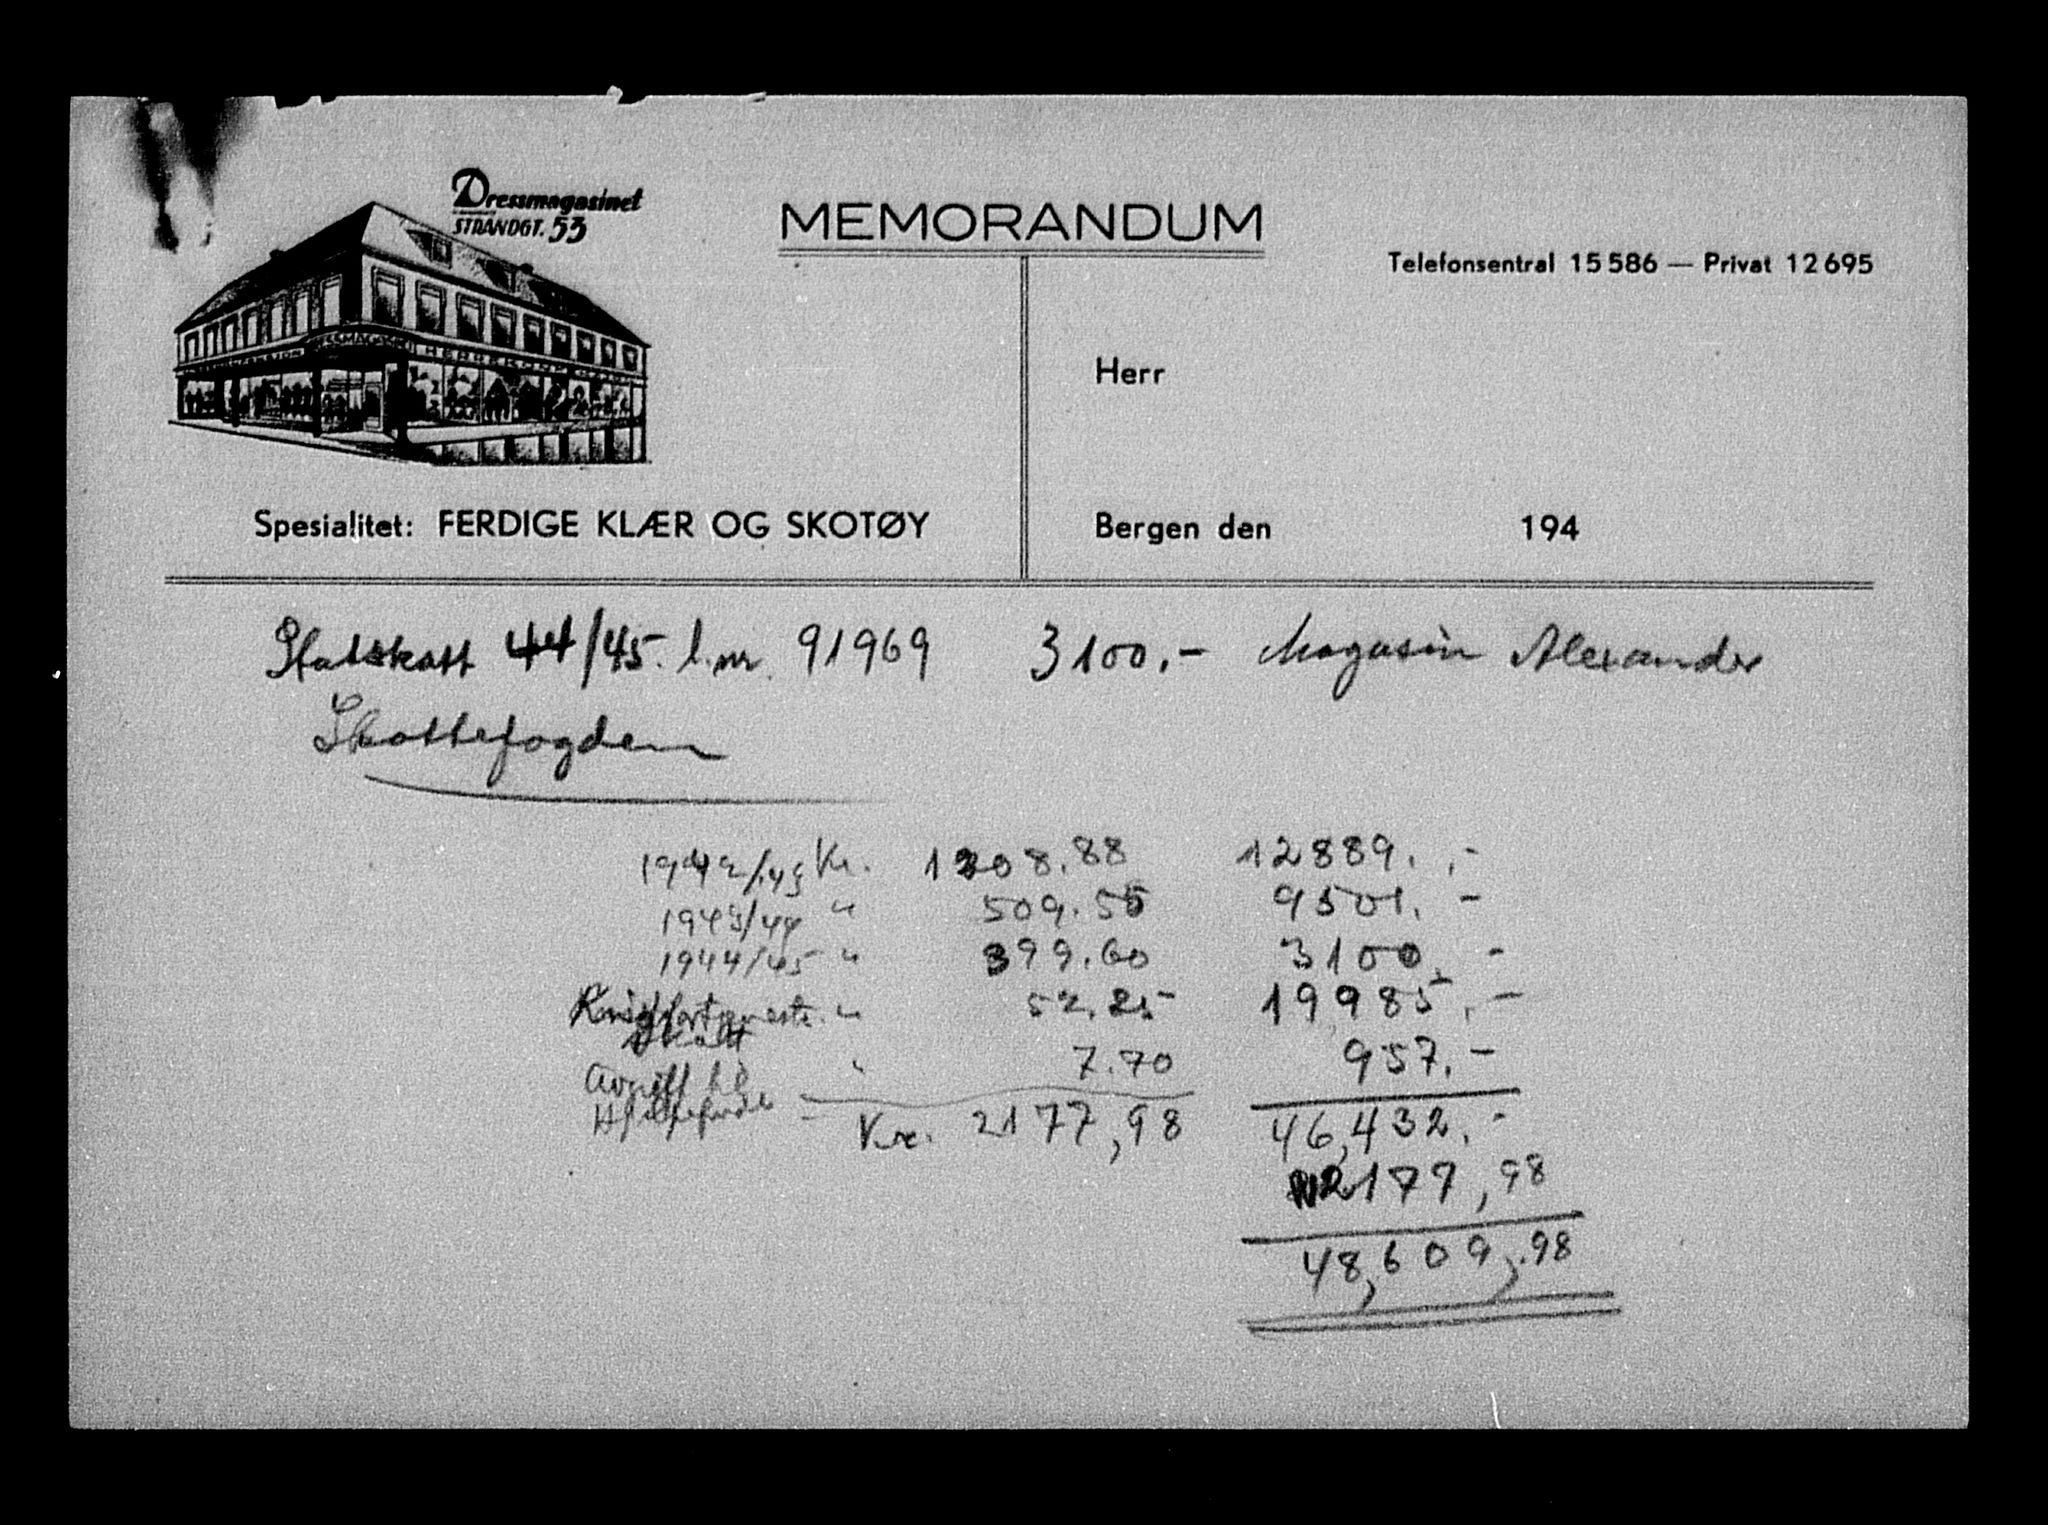 Dressmagasinet
STRANDGT. 53
MEMORANDUM
Telefonsentral 15586 — Privat 12695
Herr
Spesialitet: FERDIGE KLÆR OG SKOTØY
Bergen den 194
Statskatt 44/45. l.nr. 91969 3100.- Magasin Alexander
Skattefogden
1942/43 Kr. 1208.88 12889.-
1943/44 " 509.55 9501.-
1944/45 " 399.60 3100.-
" 52.25 19985.-
skatt
Avgift til " 7.70 957.-
Hjelpefondet
Kr. 2177,98 46,432.-
2177,98
48,609,.98